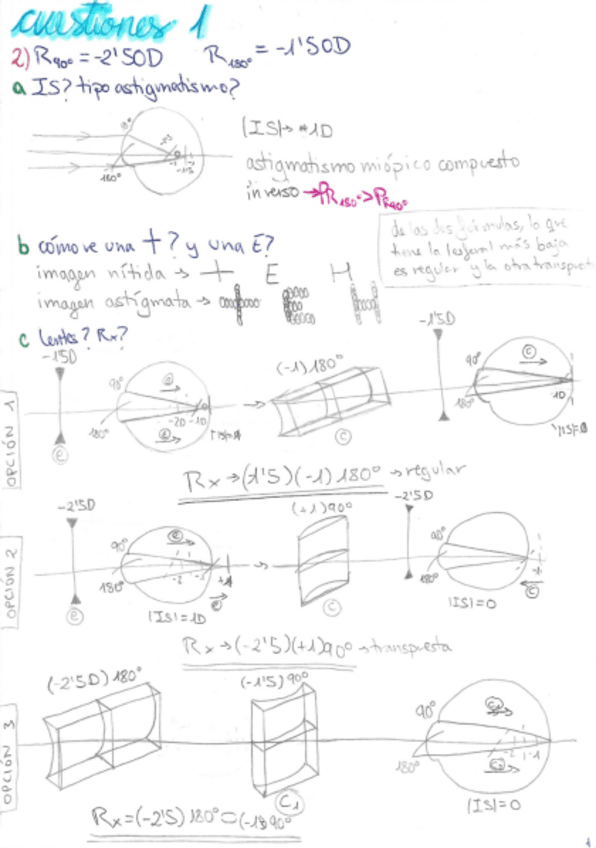 cuestiones 1
2) R90° = -2'50D R180° = -1'50D
a IS? tipo astigmatismo?
|IS| → 1D
180°
astigmatismo miópico compuesto
inverso → PR180° > PR90°
b cómo ve una +? y una E?
de las dos fórmulas, lo que
tiene la esferal más baja
es regular y la otra transpuet
imagen nítida → + E H
imagen astígmata →
c Lentes? Rx?
OPCIÓN 1
-1'5D
90°
180°
-2D -1D
e
(-1) 180°
c
-1'5D
90°
180°
-1D
|IS|=0
Rx → (1'5) (-1) 180° → regular
OPCIÓN 2
-2'5D
90°
180°
e
|IS| = 1D
(+1) 90°
c
-2'5D
90°
180°
|IS|=0
Rx → (-2'5)(+1)90° → transpuesta
OPCIÓN 3
(-2'5D) 180°
(-1'5) 90°
C1
90°
180°
-2 -1
|IS|=0
Rx = (-2'5) 180° = (-1'5) 90°
1